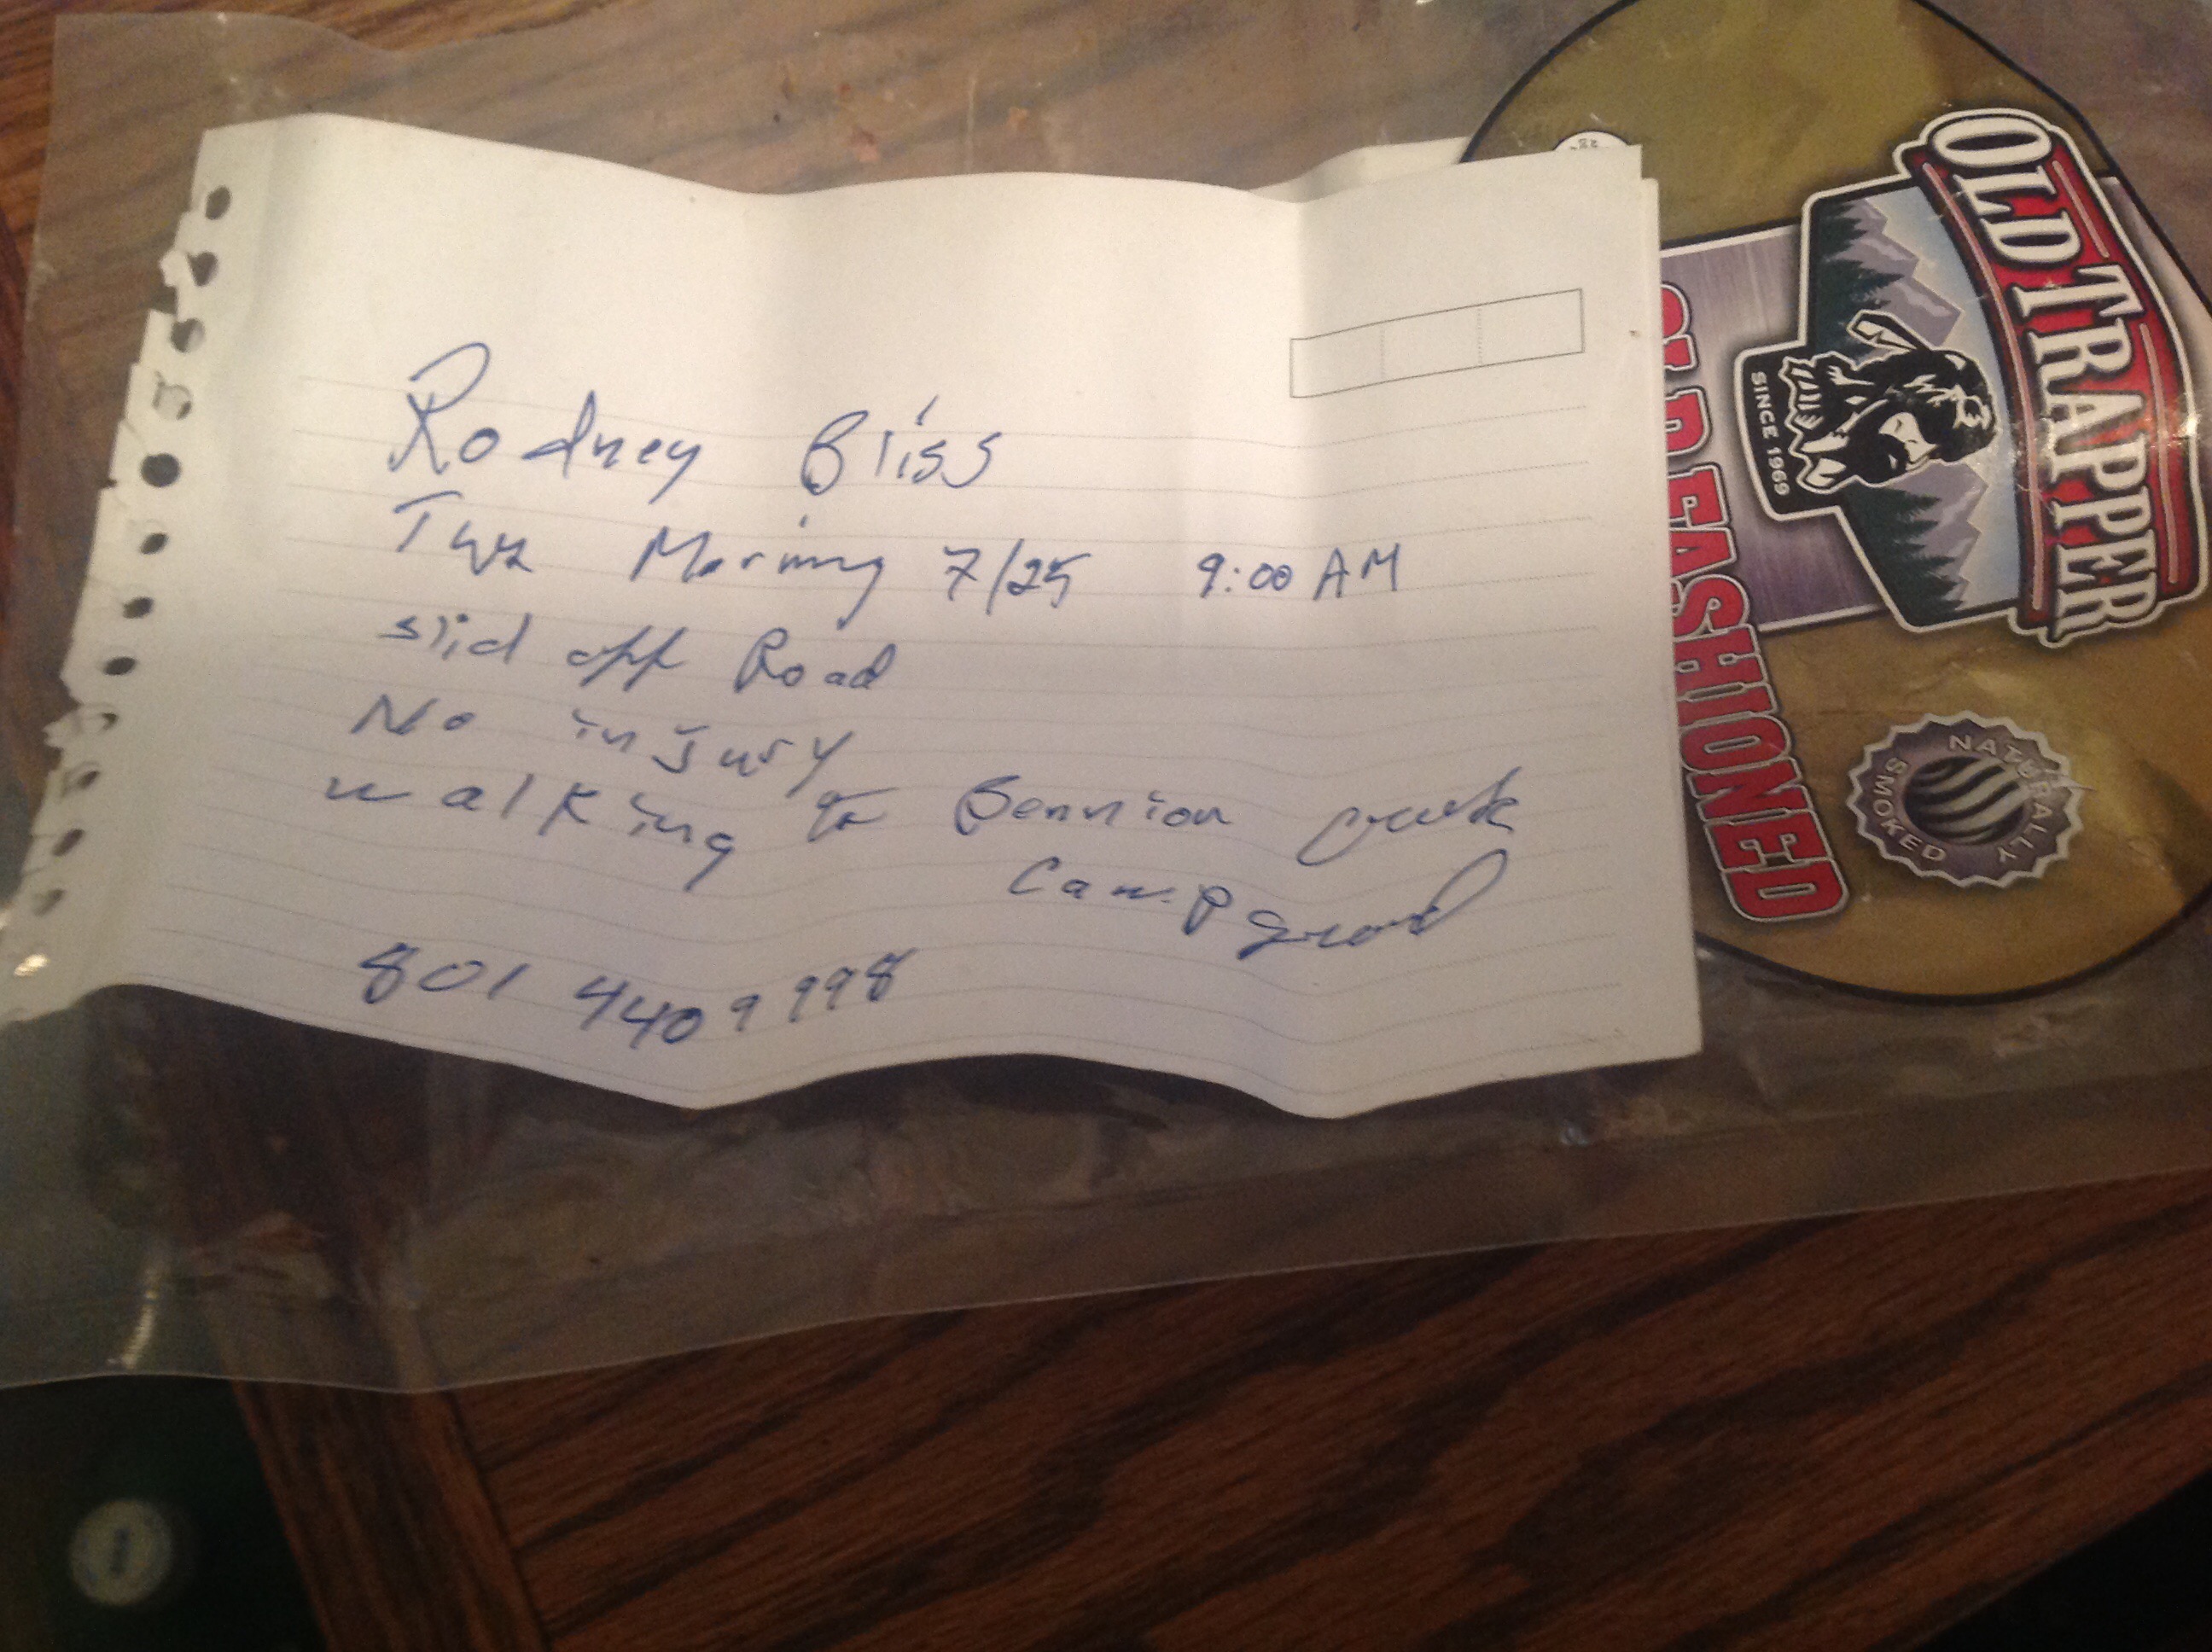 Rodney Bliss
Tues Morning 7/25 9:00 AM
slid off Road
No injury
walking to Bennion creek
Campground
801 440 9998
OLD TRAPPER
SINCE 1969
OLD FASHIONED
NATURALLY
SMOKED